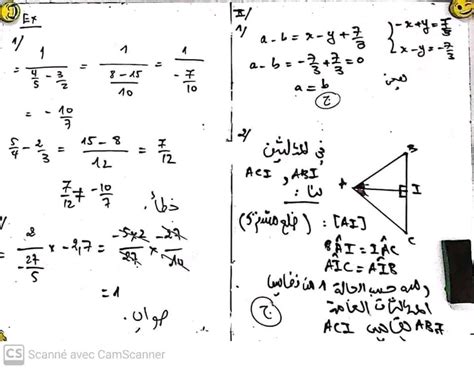 Ex
1/
= 1/(4/5 - 3/2) = 1/((8-15)/10) = 1/(-7/10)
= -10/7
5/4 - 2/3 = (15-8)/12 = 7/12
7/12 ≠ -10/7
خطأ.
= 2/(-27/5) × -2,7 = (-5×2)/27 × (-27)/10
= 1
صواب.
II/
1/
a - b = x - y + 7/3
{ -x+y = 7/3
x - y = -7/3
a - b = -7/3 + 7/3 = 0
a = b
2/
في المثلثين
ABI و ACI
لنا:
[AI] : (ضلع مشترك)
BÂI = IÂC
AÎC = AÎB
ومنه حسب الحالة 1 من تقايس
المثلثات العامة
ABI يقايس ACI
A
B
I
C
CS Scanné avec CamScanner